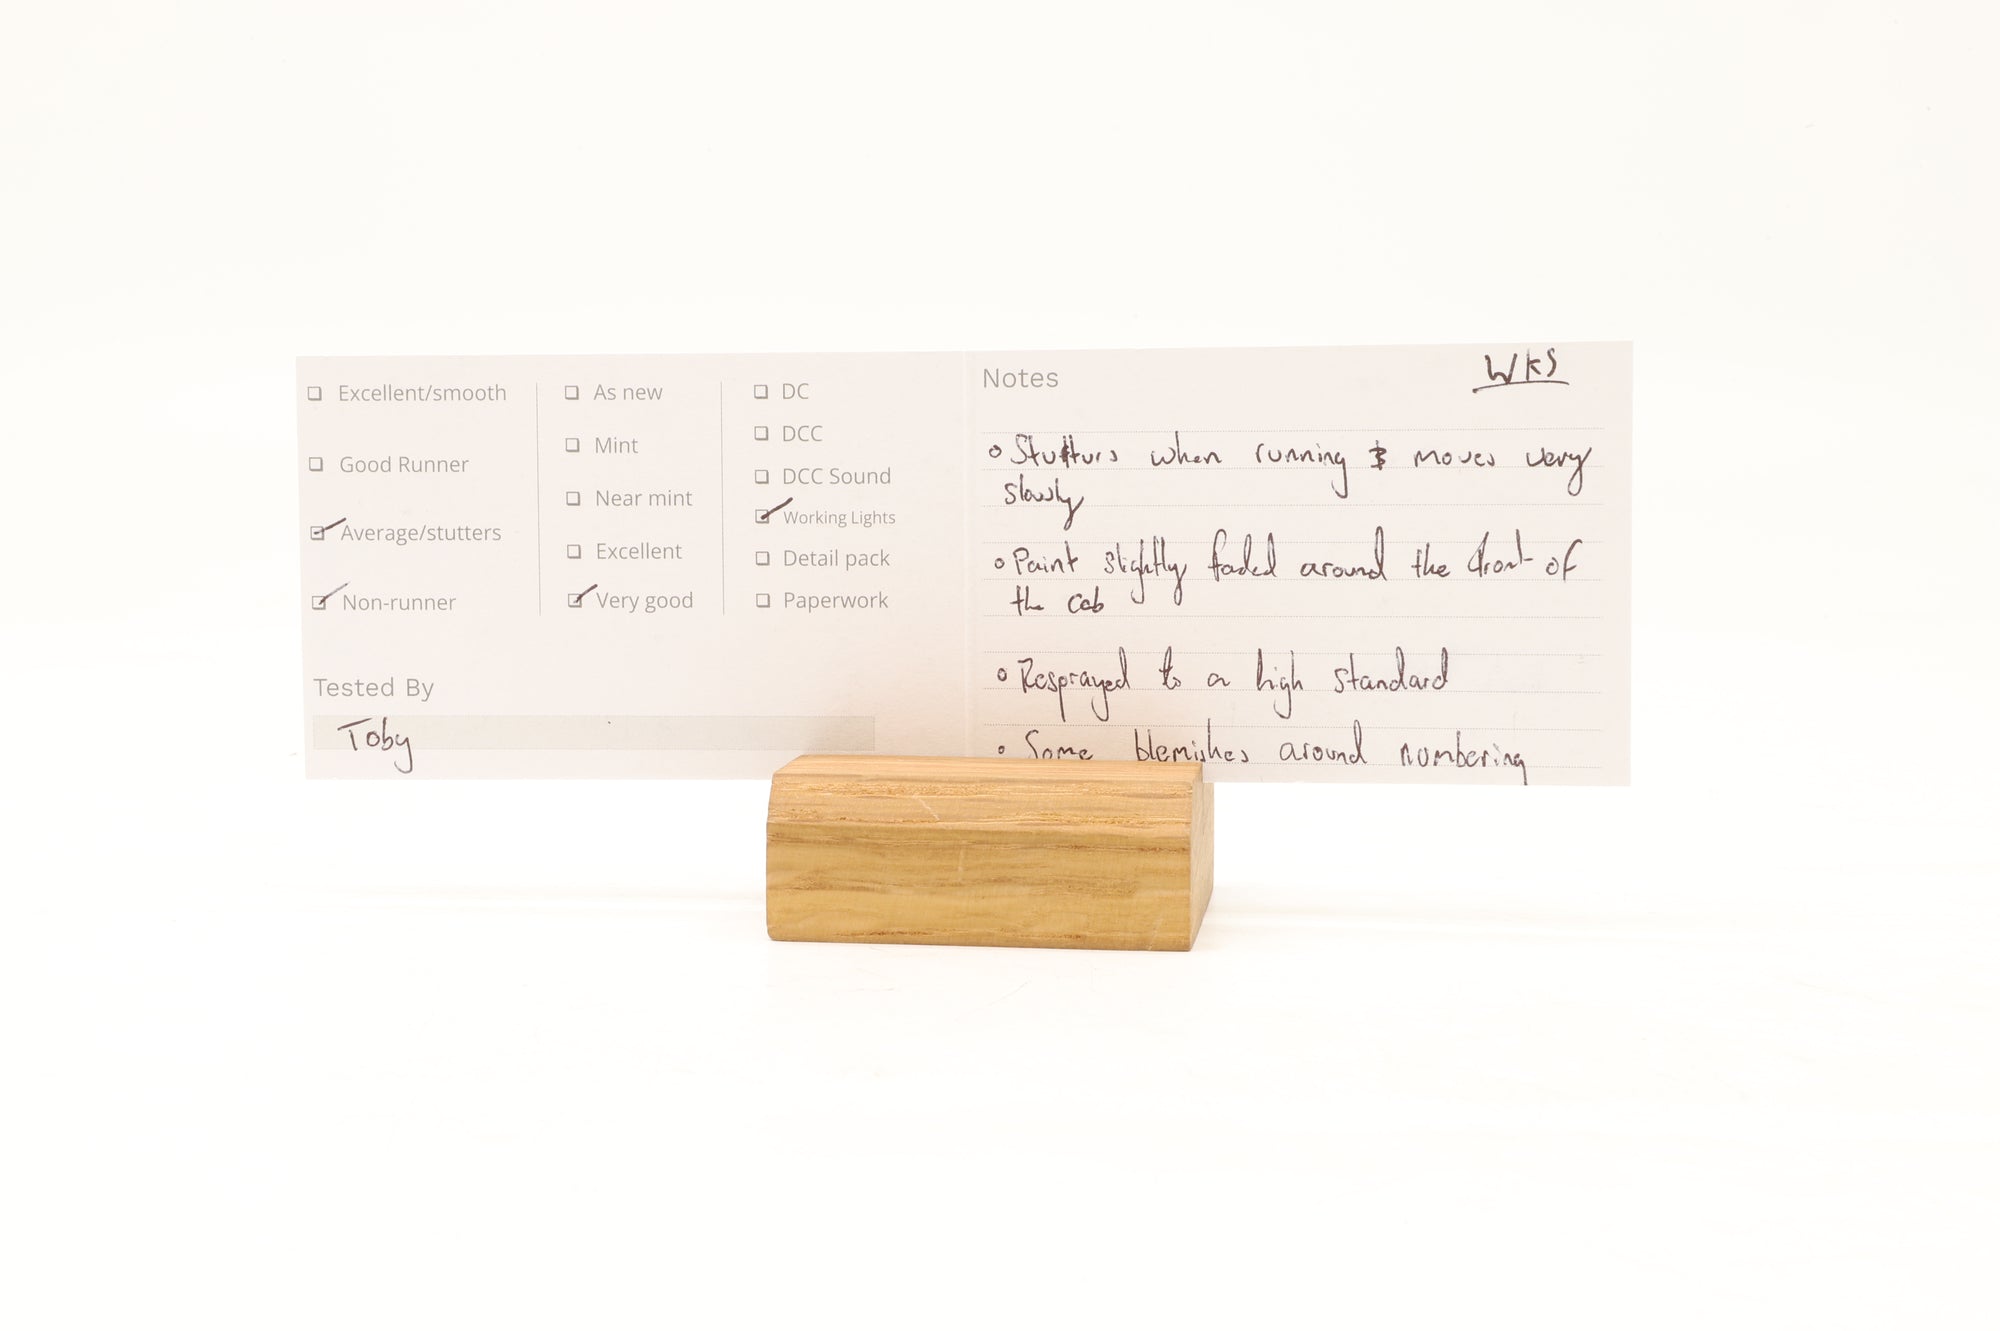 Excellent/smooth
Good Runner
Average/stutters
Non-runner
As new
Mint
Near mint
Excellent
Very good
DC
DCC
DCC Sound
Working Lights
Detail pack
Paperwork
Tested By
Toby
Notes
WKS
Stutturs when running & moves very
slowly
Paint slightly faded around the front of
the cab
Resprayed to a high standard
Some blemishes around numbering